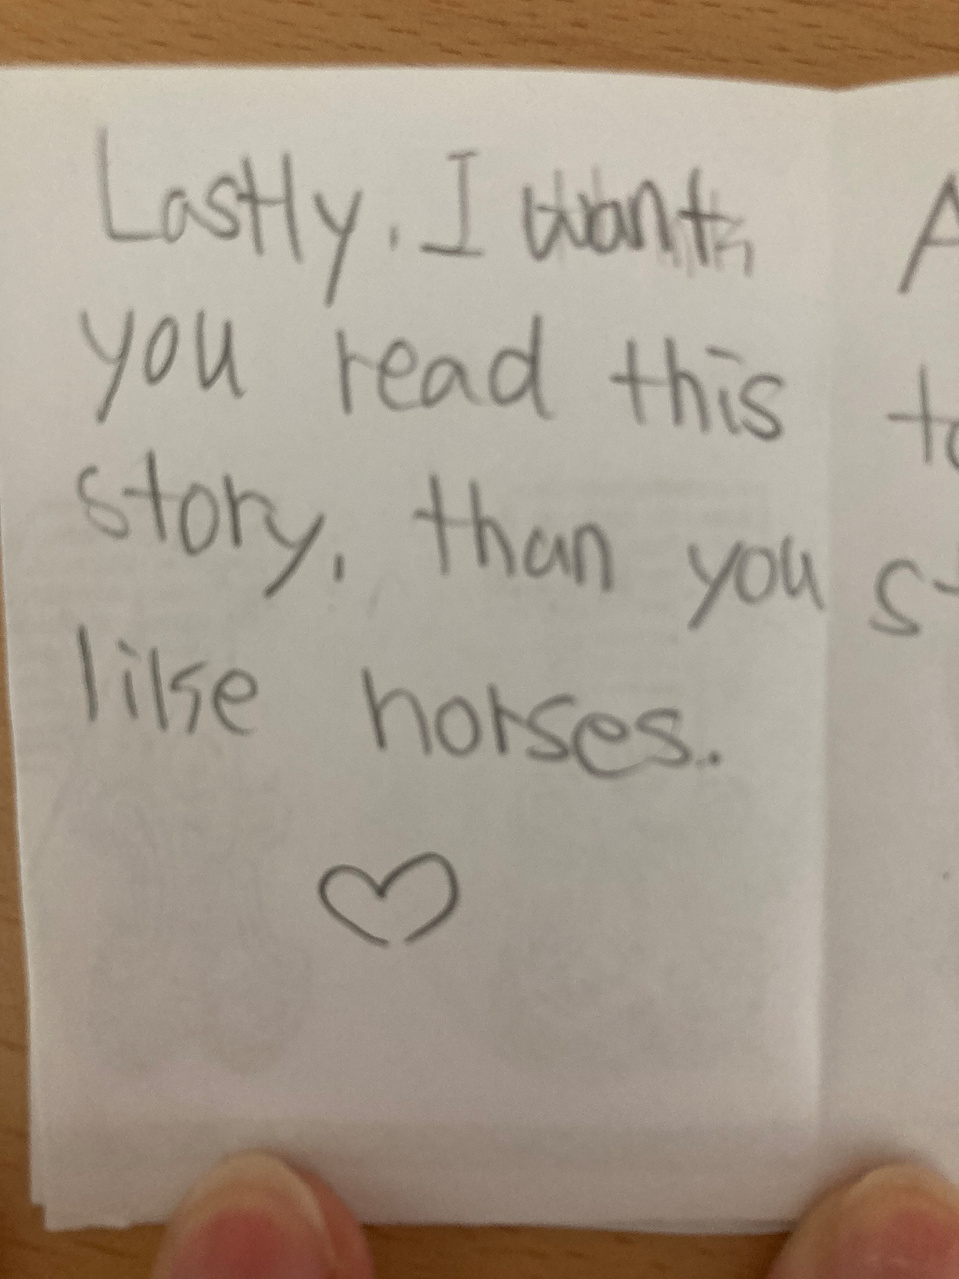 Lastly, I want
you read this
story, than you
like horses.
A
to